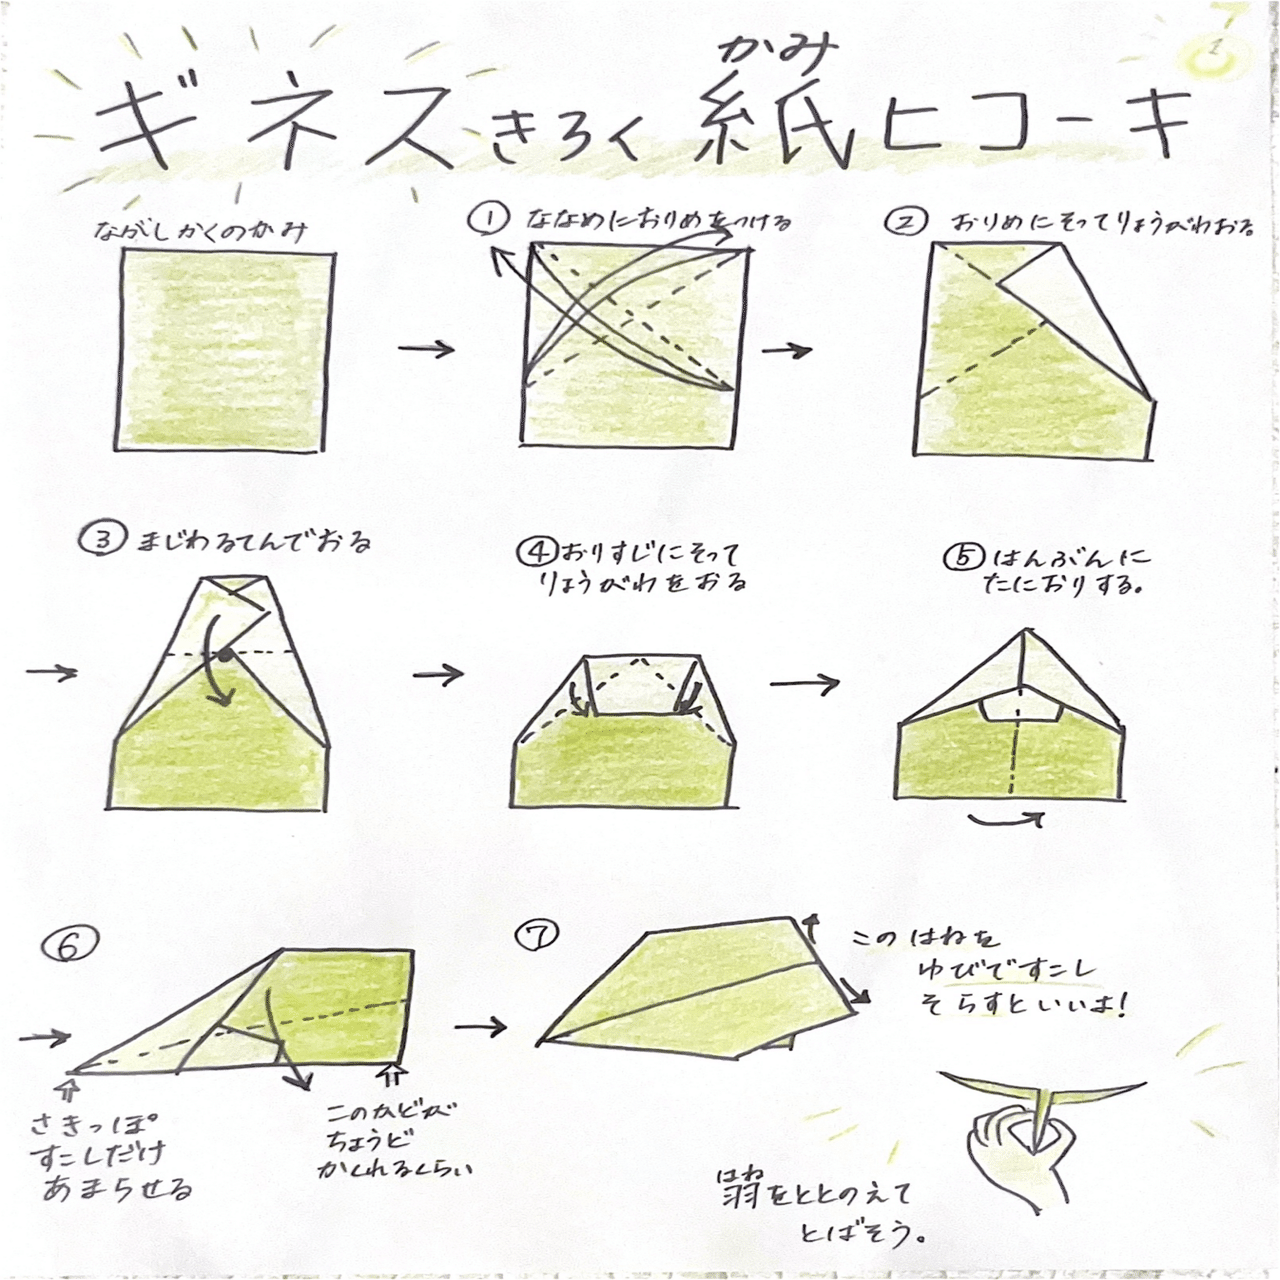 かみ
ギネスきろく紙ヒコーキ
1
ながしかくのかみ
① ななめにおりめをつける
② おりめにそってりょうがわおる
③ まじわるてんでおる
④ おりすじにそって
りょうがわをおる
⑤ はんぶんに
たにおりする。
⑥
さきっぽ
すこしだけ
あまらせる
このかどが
ちょうど
かくれるくらい
⑦
このはねを
ゆびですこし
そらすといいよ!
はね
羽をととのえて
とばそう。